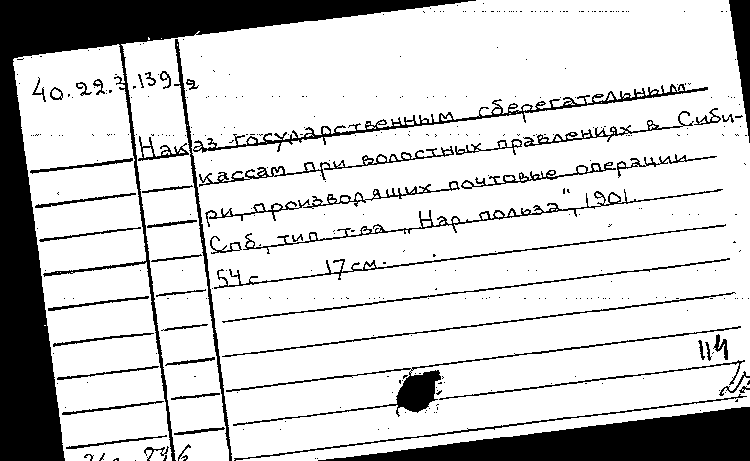 40.22.3.139
Наказ государственным сберегательным
кассам при волостных правлениях в Сиби-
ри, производящих почтовые операции
Спб., тип. т-ва „Нар. польза", 1901.
54 с. 17 см.
114